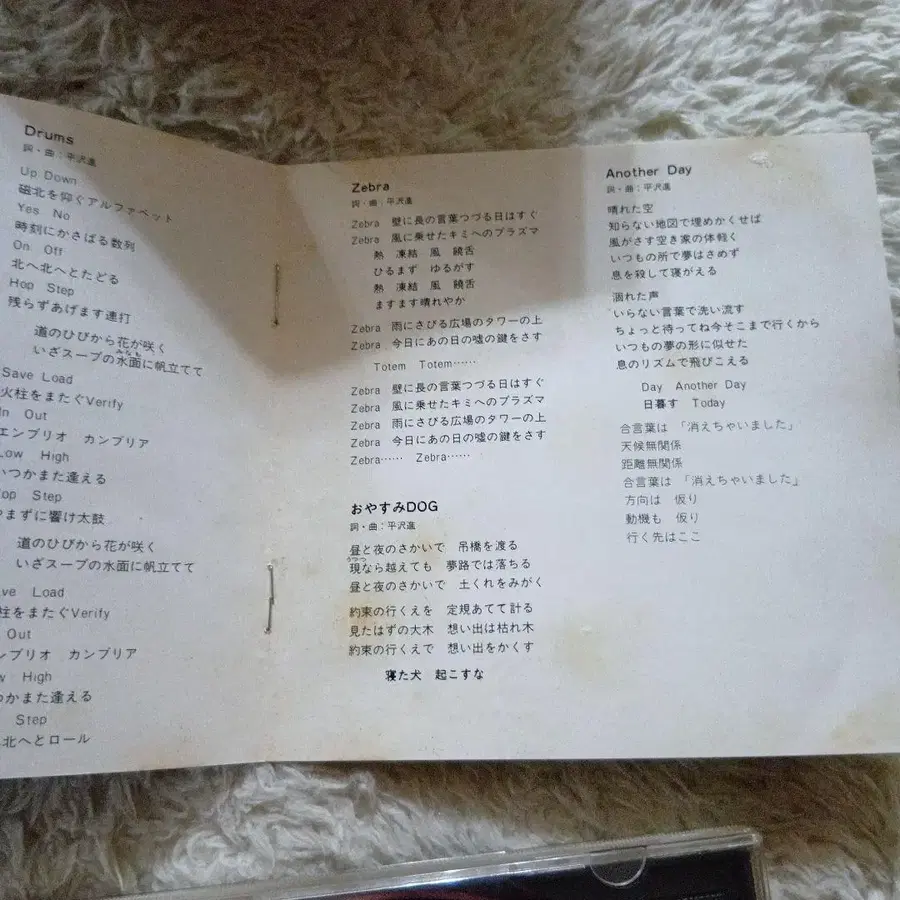 Drums
詞・曲：平沢進
Up Down
磁北を仰ぐアルファベット
Yes No
時刻にかさばる数列
On Off
北へ北へとたどる
Hop Step
残らずあげます連打
道のひびから花が咲く
いざスープの水面に帆立てて
Save Load
火柱をまたぐVerify
In Out
エンブリオ カンブリア
Low High
いつかまた逢える
Hop Step
やまずに響け太鼓
道のひびから花が咲く
いざスープの水面に帆立てて
ve Load
柱をまたぐVerify
Out
ンブリオ カンブリア
w High
つかまた逢える
Step
北へとロール
Zebra
詞・曲：平沢進
Zebra 壁に長の言葉つづる日はすぐ
Zebra 風に乗せたキミへのプラズマ
熱 凍結 風 饒舌
ひるまず ゆるがす
熱 凍結 風 饒舌
ますます晴れやか
Zebra 雨にさびる広場のタワーの上
Zebra 今日にあの日の嘘の鍵をさす
Totem Totem……
Zebra 壁に長の言葉つづる日はすぐ
Zebra 風に乗せたキミへのプラズマ
Zebra 雨にさびる広場のタワーの上
Zebra 今日にあの日の嘘の鍵をさす
Zebra…… Zebra……
おやすみDOG
詞・曲：平沢進
昼と夜のさかいで 吊橋を渡る
現なら越えても 夢路では落ちる
昼と夜のさかいで 土くれをみがく
約束の行くえを 定規あてて計る
見たはずの大木 想い出は枯れ木
約束の行くえで 想い出をかくす
寝た犬 起こすな
Another Day
詞・曲：平沢進
晴れた空
知らない地図で埋めかくせば
風がさす空き家の体軽く
いつもの所で夢はさめず
息を殺して寝がえる
涸れた声
いらない言葉で洗い流す
ちょっと待ってね今そこまで行くから
いつもの夢の形に似せた
息のリズムで飛びこえる
Day Another Day
日暮す Today
合言葉は 「消えちゃいました」
天候無関係
距離無関係
合言葉は 「消えちゃいました」
方向は 仮り
動機も 仮り
行く先はここ